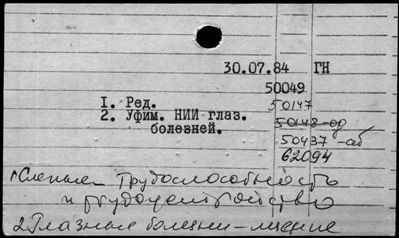 30.07.84 ГН
50049
1. Ред.
50147
2. Уфим. НИИ глаз.
50148-од
болезней.
50437-аб
62094
1 Слепые Трудоспособность
и трудоустройство
2. Глазные болезни-лечение